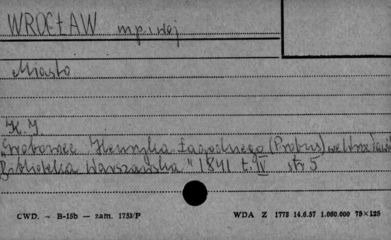 WROCŁAW m.p. i woj
Miasto
K. J.
Grobowiec Henryka Łagodnego (Probus) we Wrocławiu
Biblioteka Warszawska" 1841 t. IV str 5
CWD. - B-15b - zam. 1753/P WDA Z 1773 14.6.57 1.060.000 75×125